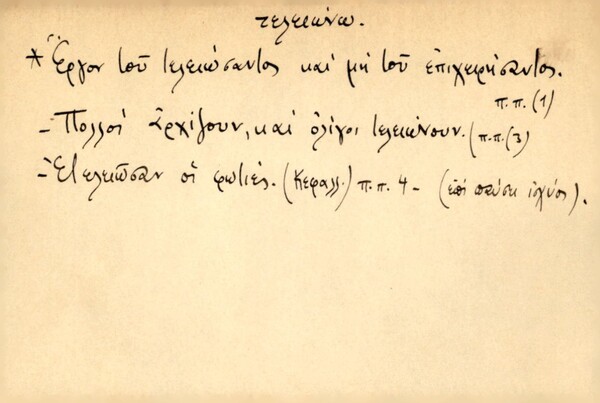 τελειώνω.
* Ἔργον τοῦ τελειώσαντος καί μή τοῦ ἐπιχειρήσαντος.
π.π. (1)
- Πολλοί ἀρχίζουν, καί ὀλίγοι τελειώνουν. (π.π. (3)
- Ἐτελειῶσαν οἱ φωτιές. (Κεφαλλ.) π.π. 4 - (ἐπί παύσει ἰσχύος).